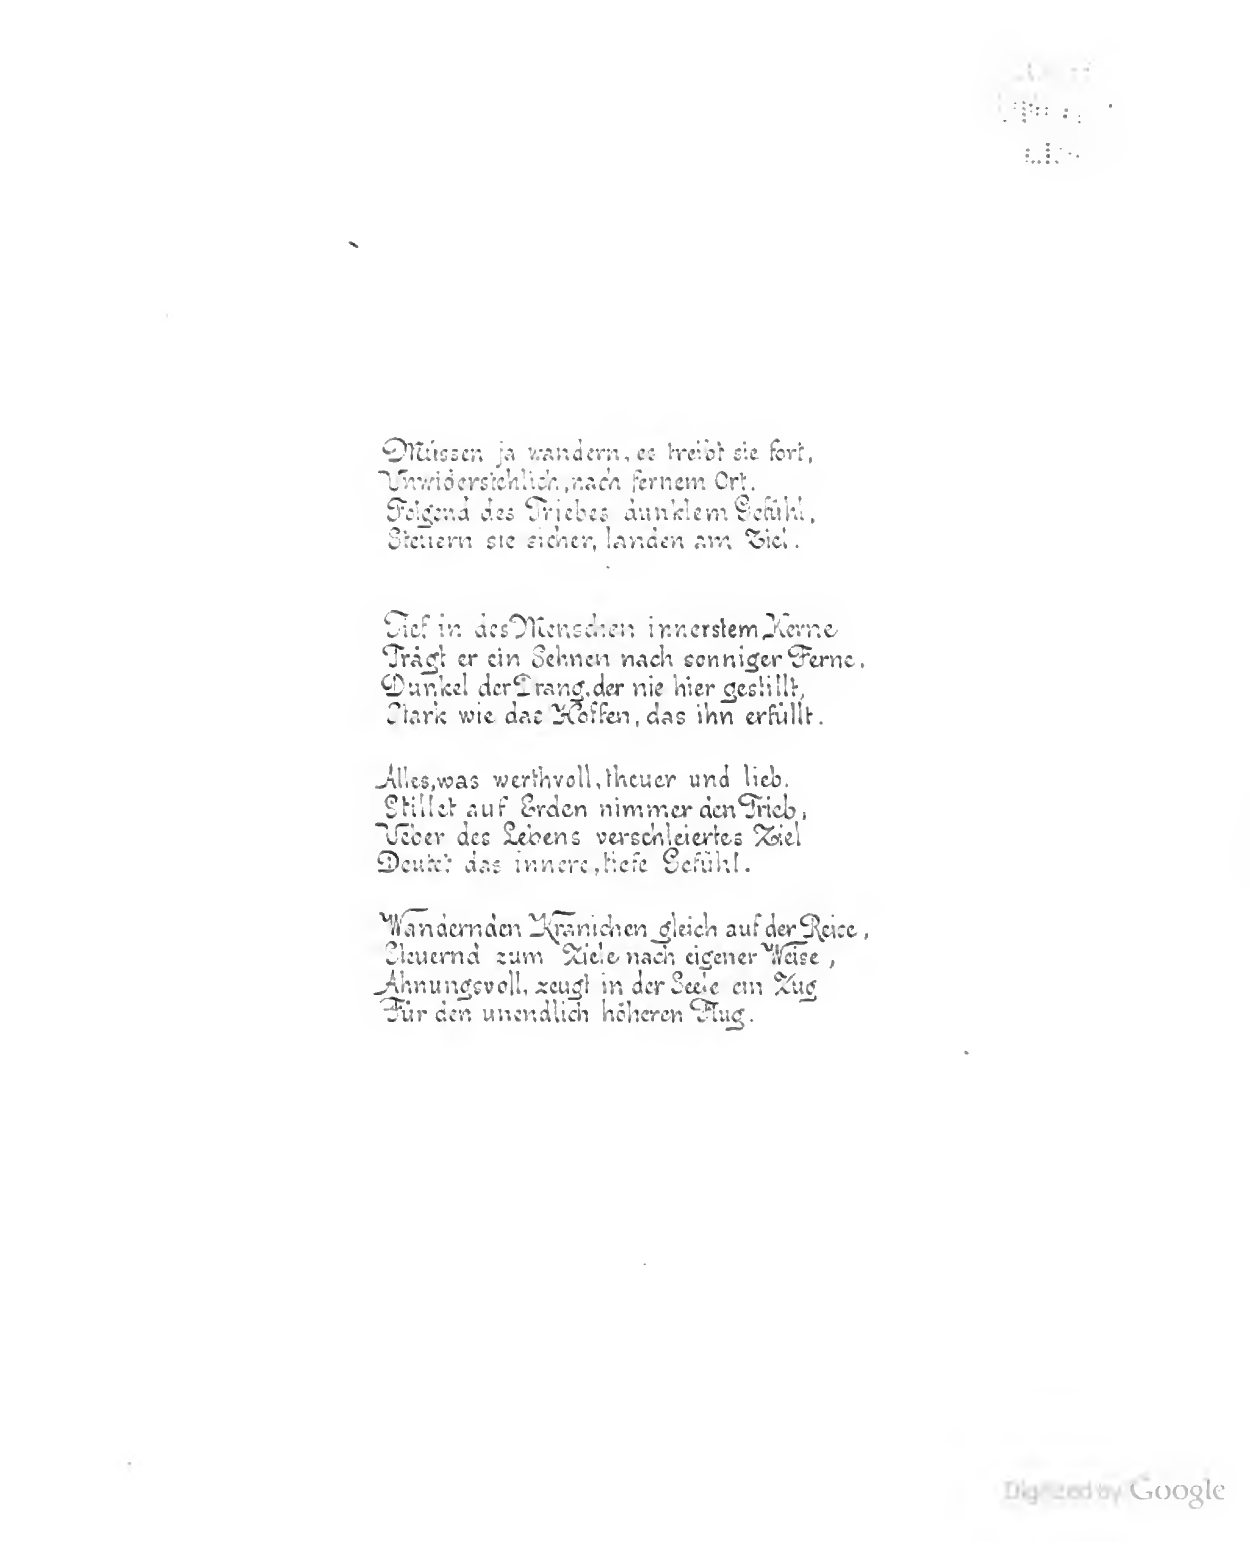 Müssen ja wandern, es treibt sie fort,
Unwiderstehlich, nach fernem Ort.
Folgend des Triebes dunklem Gefühl,
Steuern sie sicher, landen am Ziel.
Tief in des Menschen innerstem Kerne
Trägt er ein Sehnen nach sonniger Ferne.
Dunkel der Drang, der nie hier gestillt,
Stark wie das Hoffen, das ihn erfüllt.
Alles, was werthvoll, theuer und lieb.
Stillet auf Erden nimmer den Trieb,
Ueber des Lebens verschleiertes Ziel
Deutet das innere, tiefe Gefühl.
Wandernden Kranichen gleich auf der Reise,
Steuernd zum Ziele nach eigener Weise,
Ahnungsvoll, zeugt in der Seele ein Zug
Für den unendlich höheren Flug.
Digitized by Google